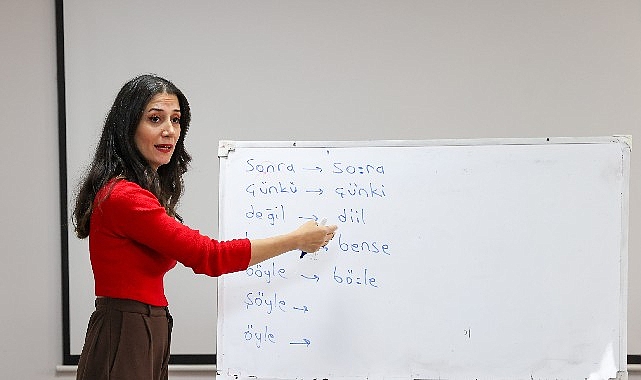 sonra → so:ra
çünkü → çünki
değil → diil
→ bense
böyle → bö:le
şöyle →
öyle →